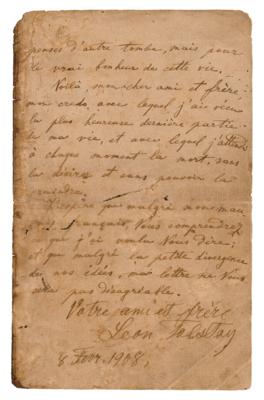 penses d'outre tombe, mais pour
le vrai bonheur de cette vie.
Voilà, mon cher ami et frère
mon credo, avec lequel j'ai vécu
la plus heureuse dernière partie
de ma vie, et avec lequel j'attends
à chaque moment la mort, sans
la désirer et sans pouvoir la
craindre.
J'espère que malgré mon mau
français, Vous comprendrez
ce que j'ai voulu Vous dire;
et que malgré la petite divergence
de nos idées, ma lettre ne Vous
sera pas désagréable.
Votre ami et frère
Léon Tolstoy
8 Févr. 1908,